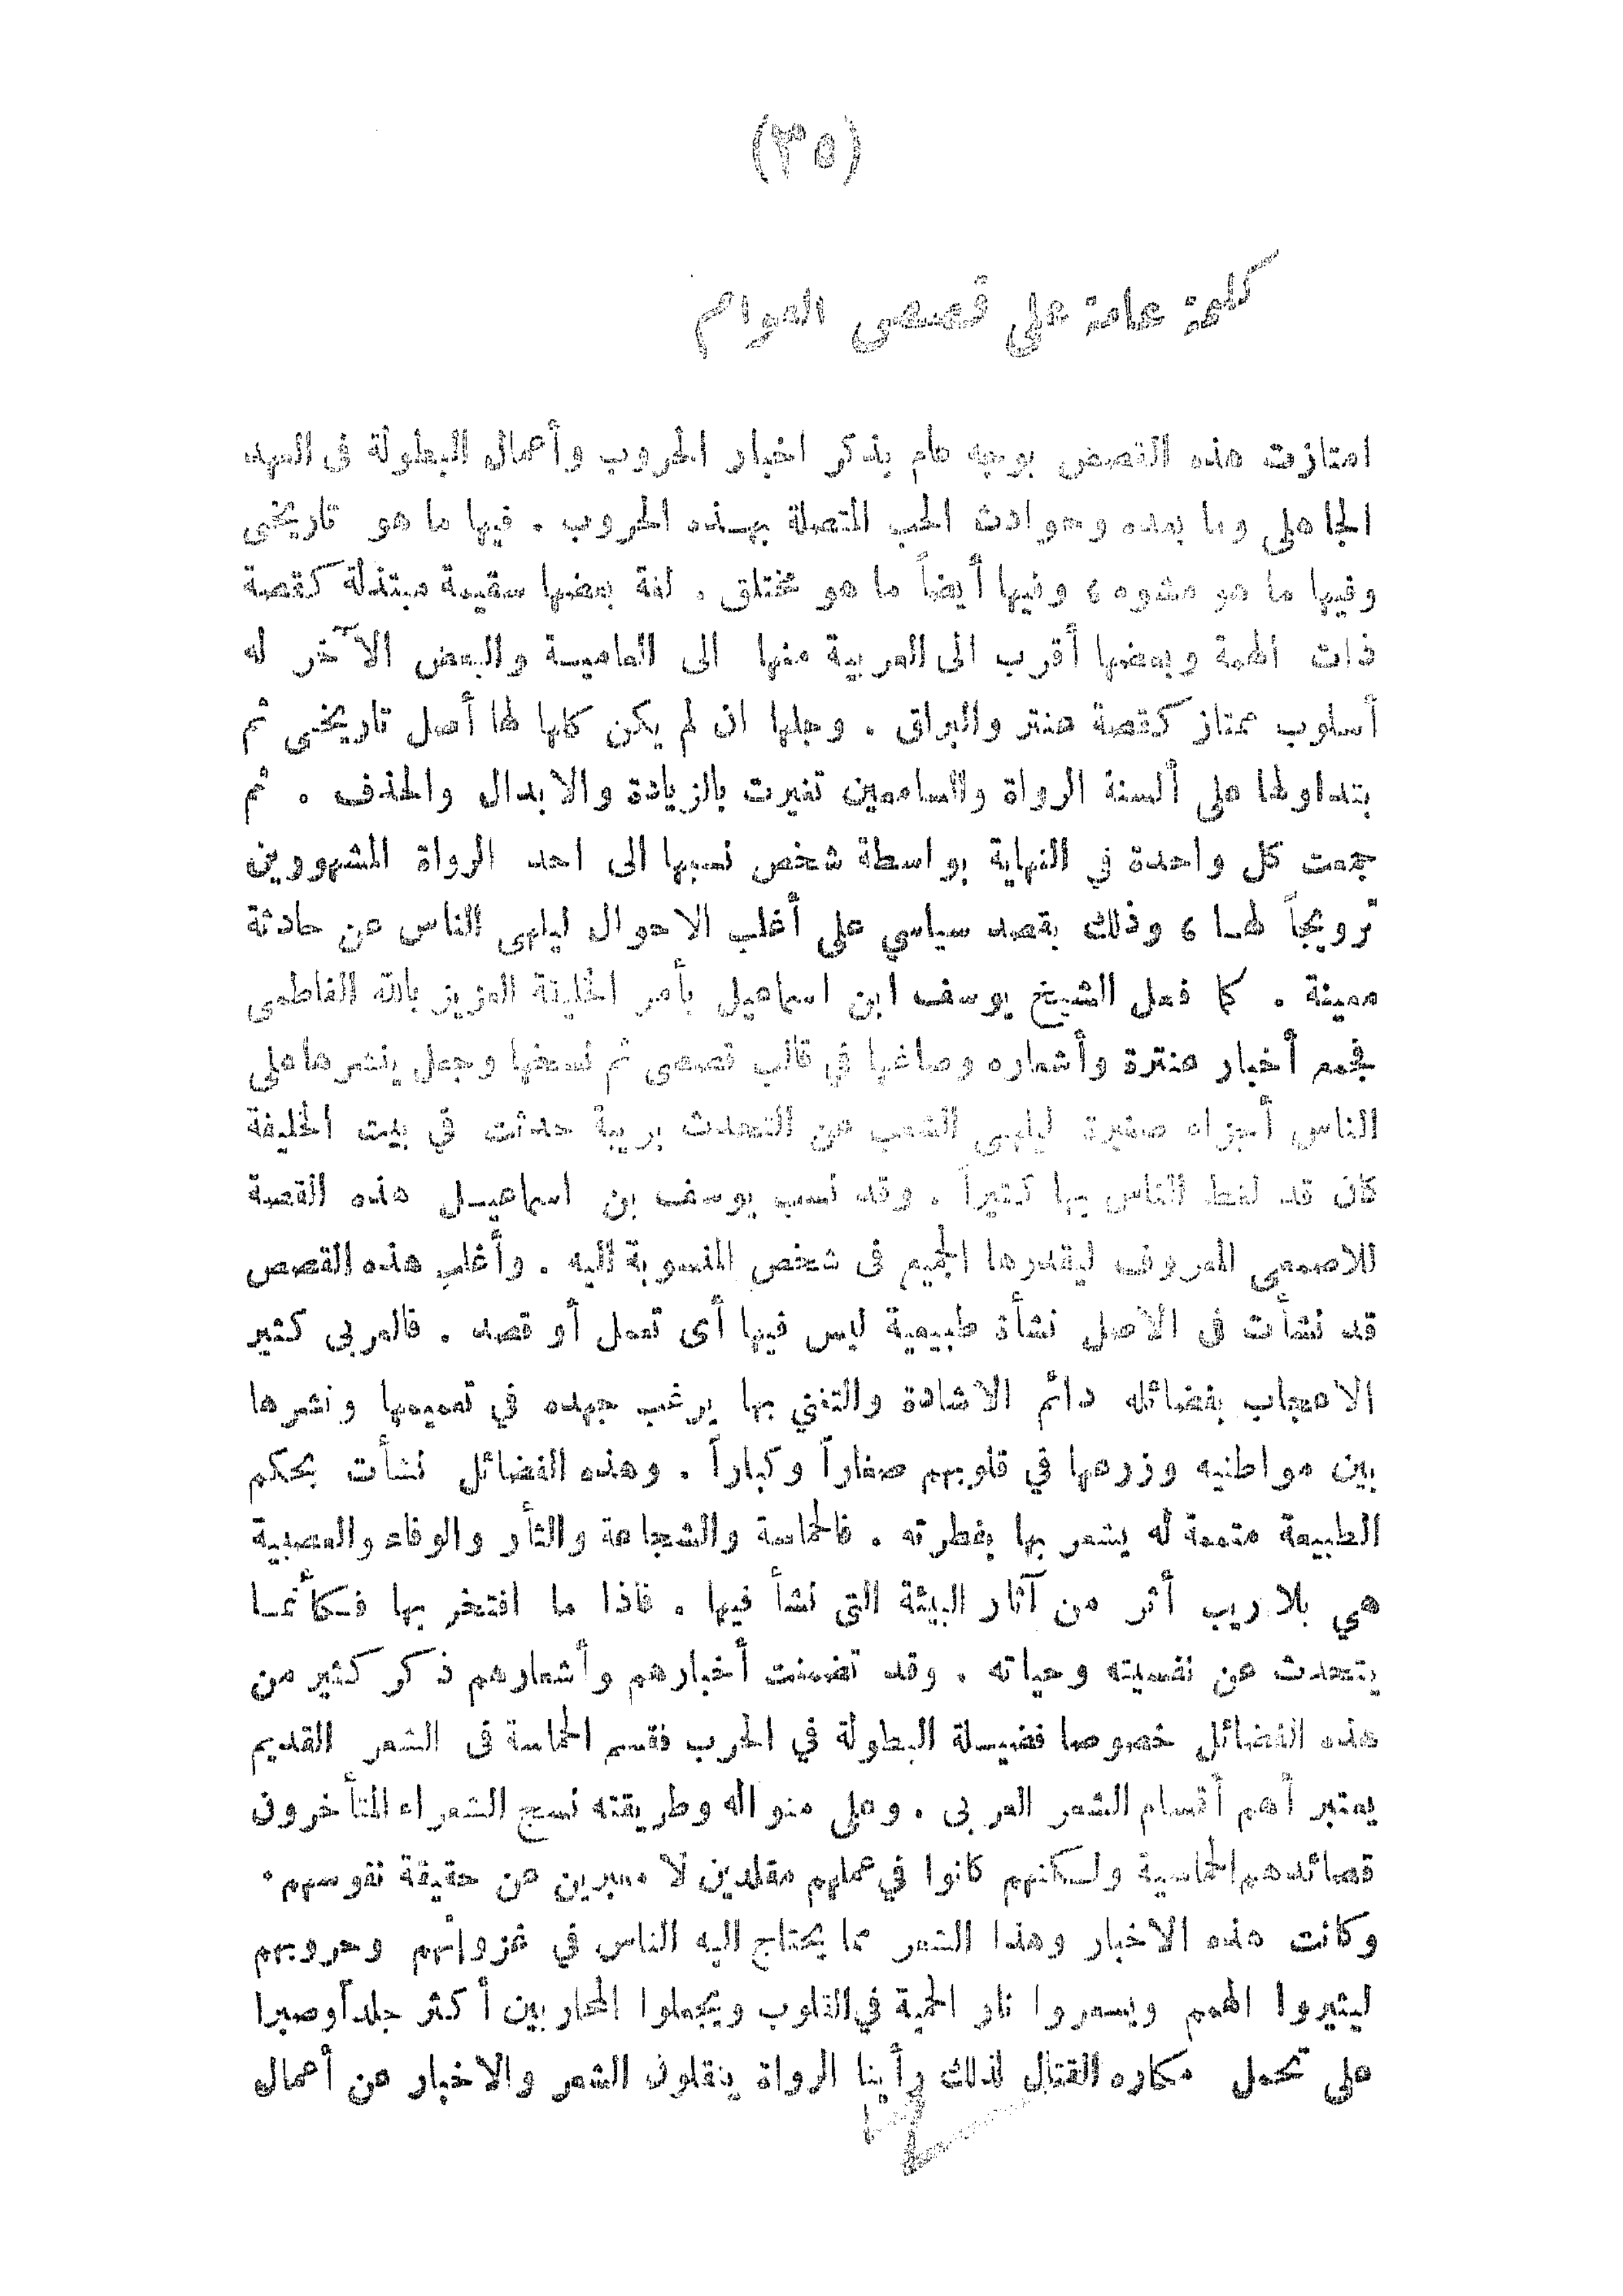 (٣٥)
كلمة عامة على قصص العوام
امتازت هذه القصص بوجه عام بذكر اخبار الحروب وأعمال البطولة فى العهد
الجاهلى وما بعده وحوادث الحب المتصلة بهـذه الحروب . فيها ما هو تاريخى
وفيها ما هو مشوه ، وفيها أيضاً ما هو مختلق . لغة بعضها سقيمة مبتذلة كقصة
ذات الهمة وبعضها أقرب الى العربية منها الى العاميـة والبعض الآخر له
أسلوب ممتاز كقصة عنتر والبراق . وجلها ان لم يكن كلها لها أصل تاريخى ثم
بتداولها على ألسنة الرواة والسامعين تغيرت بالزيادة والابدال والحذف . ثم
جمعت كل واحدة في النهاية بواسطة شخص نسبها الى احد الرواة المشهورين
ترويجاً لهـا ، وذلك بقصد سياسي على أغلب الاحوال ليلهى الناس عن حادثة
معينة . كما فعل الشيخ يوسف ابن اسماعيل بأمر الخليفة العزيز بالله الفاطمى
فجمع أخبار عنترة وأشعاره وصاغها في قالب قصصى ثم نسخها وجعل ينشرها على
الناس أجزاء صغيرة ليلهى الشعب عن التحدث بريبة حدثت في بيت الخليفة
كان قد لغط الناس بها كثيراً . وقد نسب يوسف بن اسماعيـل هذه القصة
للاصمعي المعروف ليقدرها الجميع فى شخص المنسوبة اليه . وأغلب هذه القصص
قد نشأت فى الاصل نشأة طبيعية ليس فيها أى تعمل أو قصد . فالعربى كثير
الاعجاب بفضائله دائم الاشادة والتغني بها يرغب جهده في تعميمها ونشرها
بين مواطنيه وزرعها في قلوبهم صغاراً وكباراً . وهذه الفضائل نشأت بحكم
الطبيعة متممة له يشعر بها بفطرته . فالحماسة والشجاعة والثأر والوفاء والعصبية
هي بلا ريب أثر من آثار البيئة التى نشأ فيها . فاذا ما افتخر بها فـكأنمـا
يتحدث عن نفسيته وحياته . وقد تضمنت أخبارهم وأشعارهم ذكر كثير من
هذه الفضائل خصوصا فضيـلة البطولة في الحرب فقسم الحماسة فى الشعر القديم
يعتبر أهم أقسام الشعر العربى . وعلى منواله وطريقته نسج الشعراء المتأخرون
قصائدهم الحماسية ولـكنهم كانوا في عملهم مقلدين لا معبرين عن حقيقة نفوسهم .
وكانت هذه الاخبار وهذا الشعر مما يحتاج اليه الناس في غزواتهم وحروبهم
ليثيروا الهمم ويسعروا نار الحمية في القلوب ويجعلوا المحاربين أكثر جلداً وصبرا
على تحمل مكاره القتال لذلك رأينا الرواة ينقلون الشعر والاخبار عن أعمال